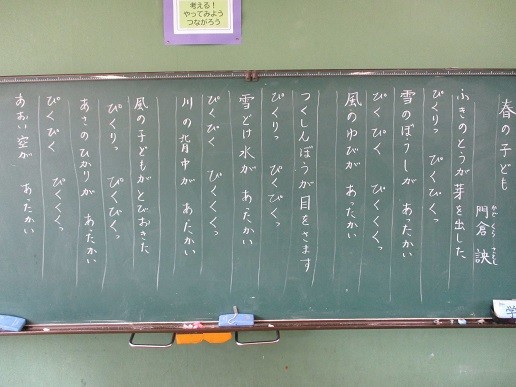 考える！
やってみよう
つながろう
春の子ども
門倉 詇
かど くら さとし
ふきのとうが芽を出した
ぴくりっ ぴくぴくっ
雪のぼうしが あったかい
ぴくぴく ぴくくくっ
風のゆびが あったかい
つくしんぼうが目をさます
ぴくりっ ぴくぴくっ
雪どけ水が あたたかい
ぴくぴく ぴくくくっ
川の背中が あたたかい
風の子どもがとびおきた
ぴくりっ ぴくぴくっ
あさのひかりが あったかい
ぴくぴく ぴくくくっ
あおい空が あったかい
学